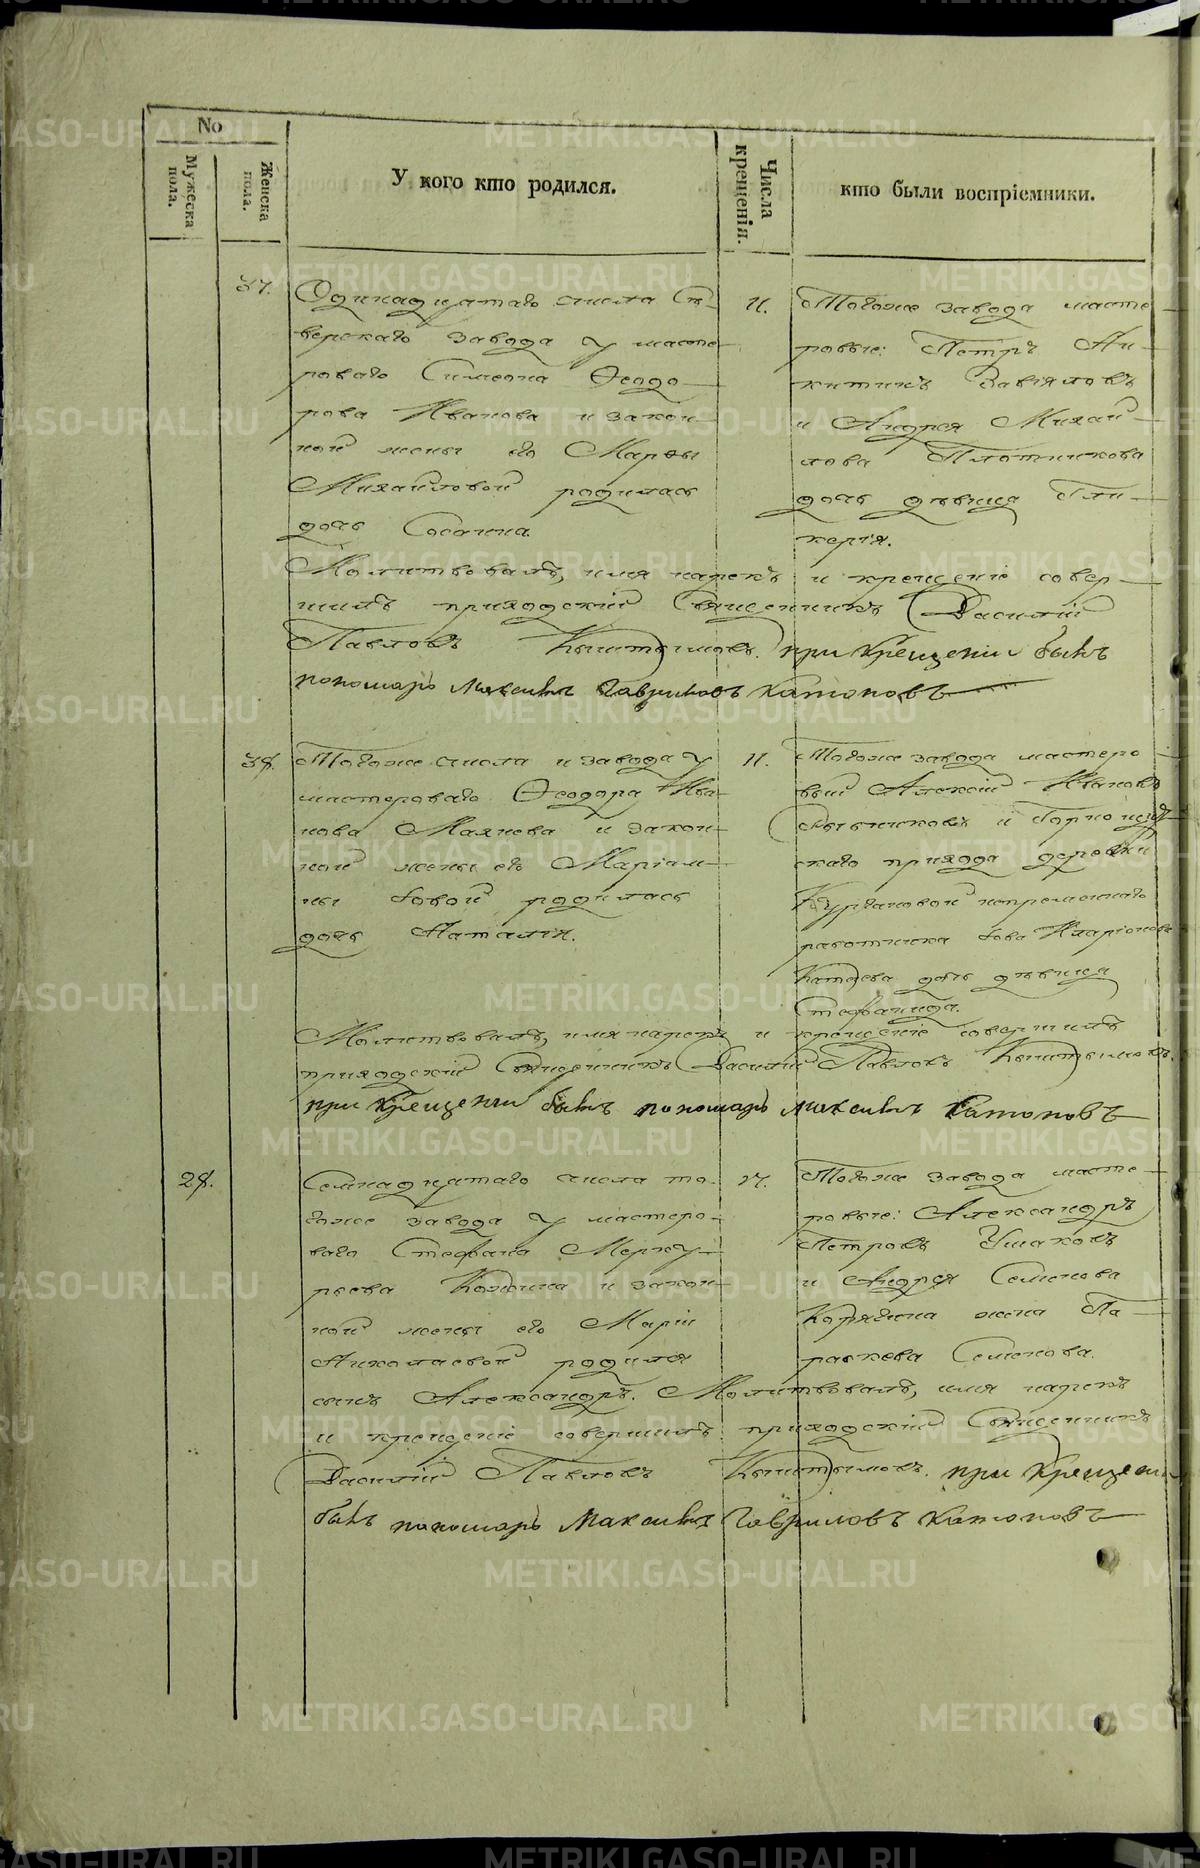 No
Мужеска пола.
Женска пола.
У кого кто родился.
Числа крещенія.
кто были воспріемники.
37.
Одинадцатаго числа Сѣ-
верскаго завода у масте-
роваго Симеона Ѳеодо-
рова Иванова и закон-
ной жены его Марѳы
Михайловой родилась
дочь Сосанна.
11.
Тогоже завода масте-
ровые: Петръ Ни-
китинъ Завьяловъ
и Андрея Михай-
лова Плотникова
дочь дѣвица Гли-
керія.
Молитвовалъ, имя нарекъ и крещеніе совер-
шилъ приходскій Священникъ Василій
Павловъ Кыштымовъ. при Крещеніи былъ
пономарь Максимъ Гавриловъ Катоновъ
38.
Тогоже числа и завода у
мастероваго Ѳеодора Ива-
нова Маянова и закон-
ной жены его Маріам-
ны Іовой родилась
дочь Наталія.
11.
Тогоже завода мастеро-
вый Алексѣй Ивановъ
и Горнощит-
скаго прихода деревни
Кургановой непремѣннаго
работника Іова Иларіонова
дочь дѣвица
Стефанида.
Молитвовалъ, имя нарекъ и крещеніе совершилъ
приходскій Священникъ Василій Павловъ Кыштымовъ.
при Крещеніи былъ пономарь Максимъ Катоновъ
28.
Семнадцатаго числа то-
гоже завода у мастеро-
ваго Стефана Мерку-
рьева и закон-
ной жены его Маріи
Николаевой родился
сынъ Александръ. Молитвовалъ, имя нарекъ
17.
Тогоже завода масте-
ровые: Александръ
Петровъ Ушаковъ
и Андрея Семенова
Корякина жена Па-
раскева Семенова.
и крещеніе совершилъ приходскій Священникъ
Василій Павловъ Кыштымовъ. при Крещеніи
былъ пономарь Максимъ Гавриловъ Катоновъ
METRIKI.GASO-URAL.RU